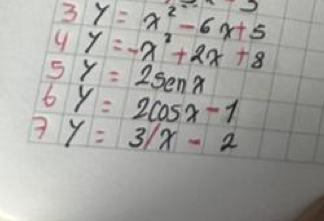 3 y = x² - 6x + 5
4 y = -x² + 2x + 8
5 y = 2senx
6 y = 2cosx - 1
7 y = 3/x - 2